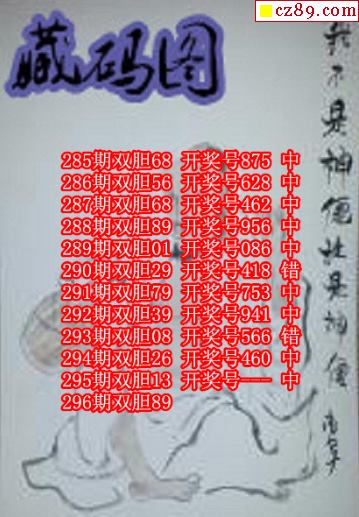 cz89.com
藏码图
我不是神僊胜是神僊
285期双胆68 开奖号875 中
286期双胆56 开奖号628 中
287期双胆68 开奖号462 中
288期双胆89 开奖号956 中
289期双胆01 开奖号086 中
290期双胆29 开奖号418 错
291期双胆79 开奖号753 中
292期双胆39 开奖号941 中
293期双胆08 开奖号566 错
294期双胆26 开奖号460 中
295期双胆13 开奖号--- 中
296期双胆89